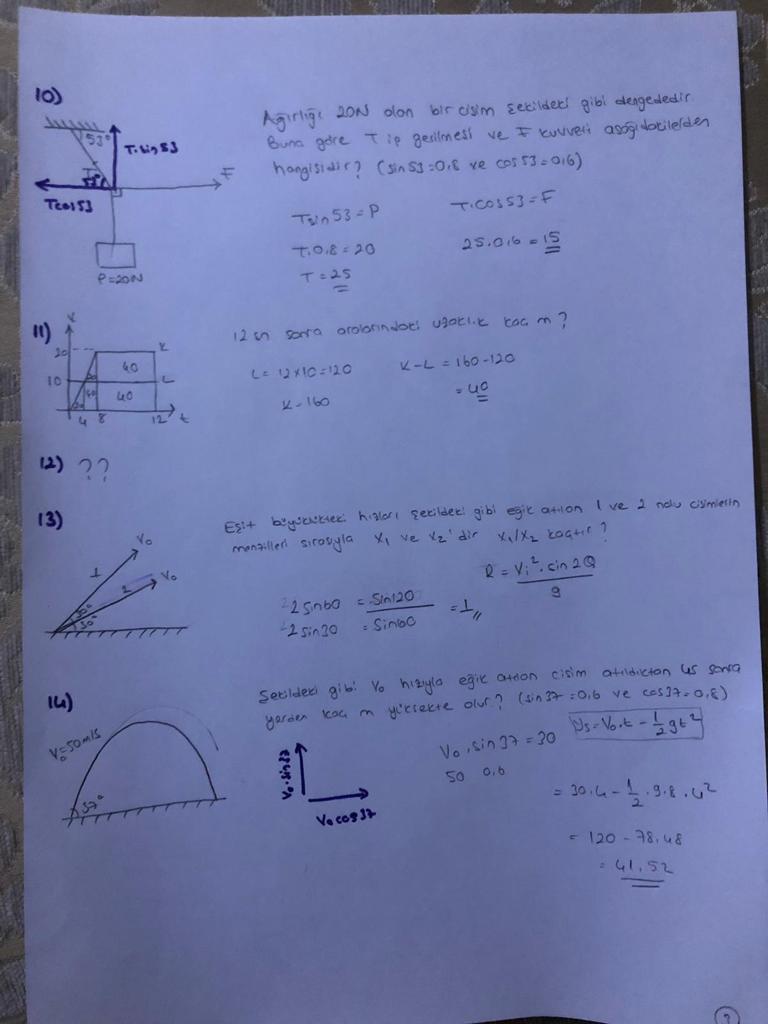 10)
53°
T.sin53
F
Tcos53
P=20N
Ağırlığı 20N olan bir cisim şekildeki gibi dengededir.
Buna göre T ip gerilmesi ve F kuvveti aşağıdakilerden
hangisidir? (sin53=0,8 ve cos53=0,6)
Tsin53=P
T.cos53=F
T.0,8=20
25.0,6=15
T=25
11)
20
K
40
10
20
L
40
40
20
4 8 12 t
12 sn sonra aralarındaki uzaklık kaç m?
L=12x10=120
K-L=160-120
K=160
=40
12) ??
13)
V₀
1
V₀
2
30°
30°
Eşit büyüklükteki hızları şekildeki gibi eğik atılan 1 ve 2 nolu cisimlerin
menzilleri sırasıyla X₁ ve X₂'dir X₁/X₂ kaçtır?
R = Vi².sin2Q
g
2sin60 = Sin120
=1
2sin30 = Sin60
14)
V₀=50m/s
37°
V₀.sin37
V₀cos37
Şekildeki gibi V₀ hızıyla eğik atılan cisim atıldıktan 4s sonra
yerden kaç m yüksekte olur? (sin37=0,6 ve cos37=0,8)
V₀.sin37=30
50 0,6
=V₀.t-1/2gt²
=30.4-1/2.9.8.4²
=120-78,48
=41,52